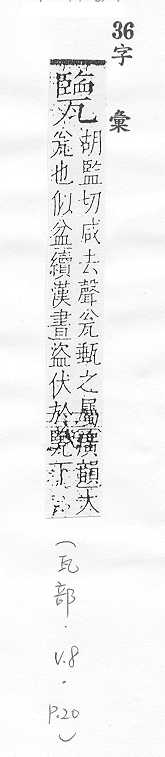 36
字彙
㽉
胡監切咸去聲瓮甀之屬廣韻大
瓮也似盆續漢書盜伏於㽉下
(瓦部.V.8.P.20)